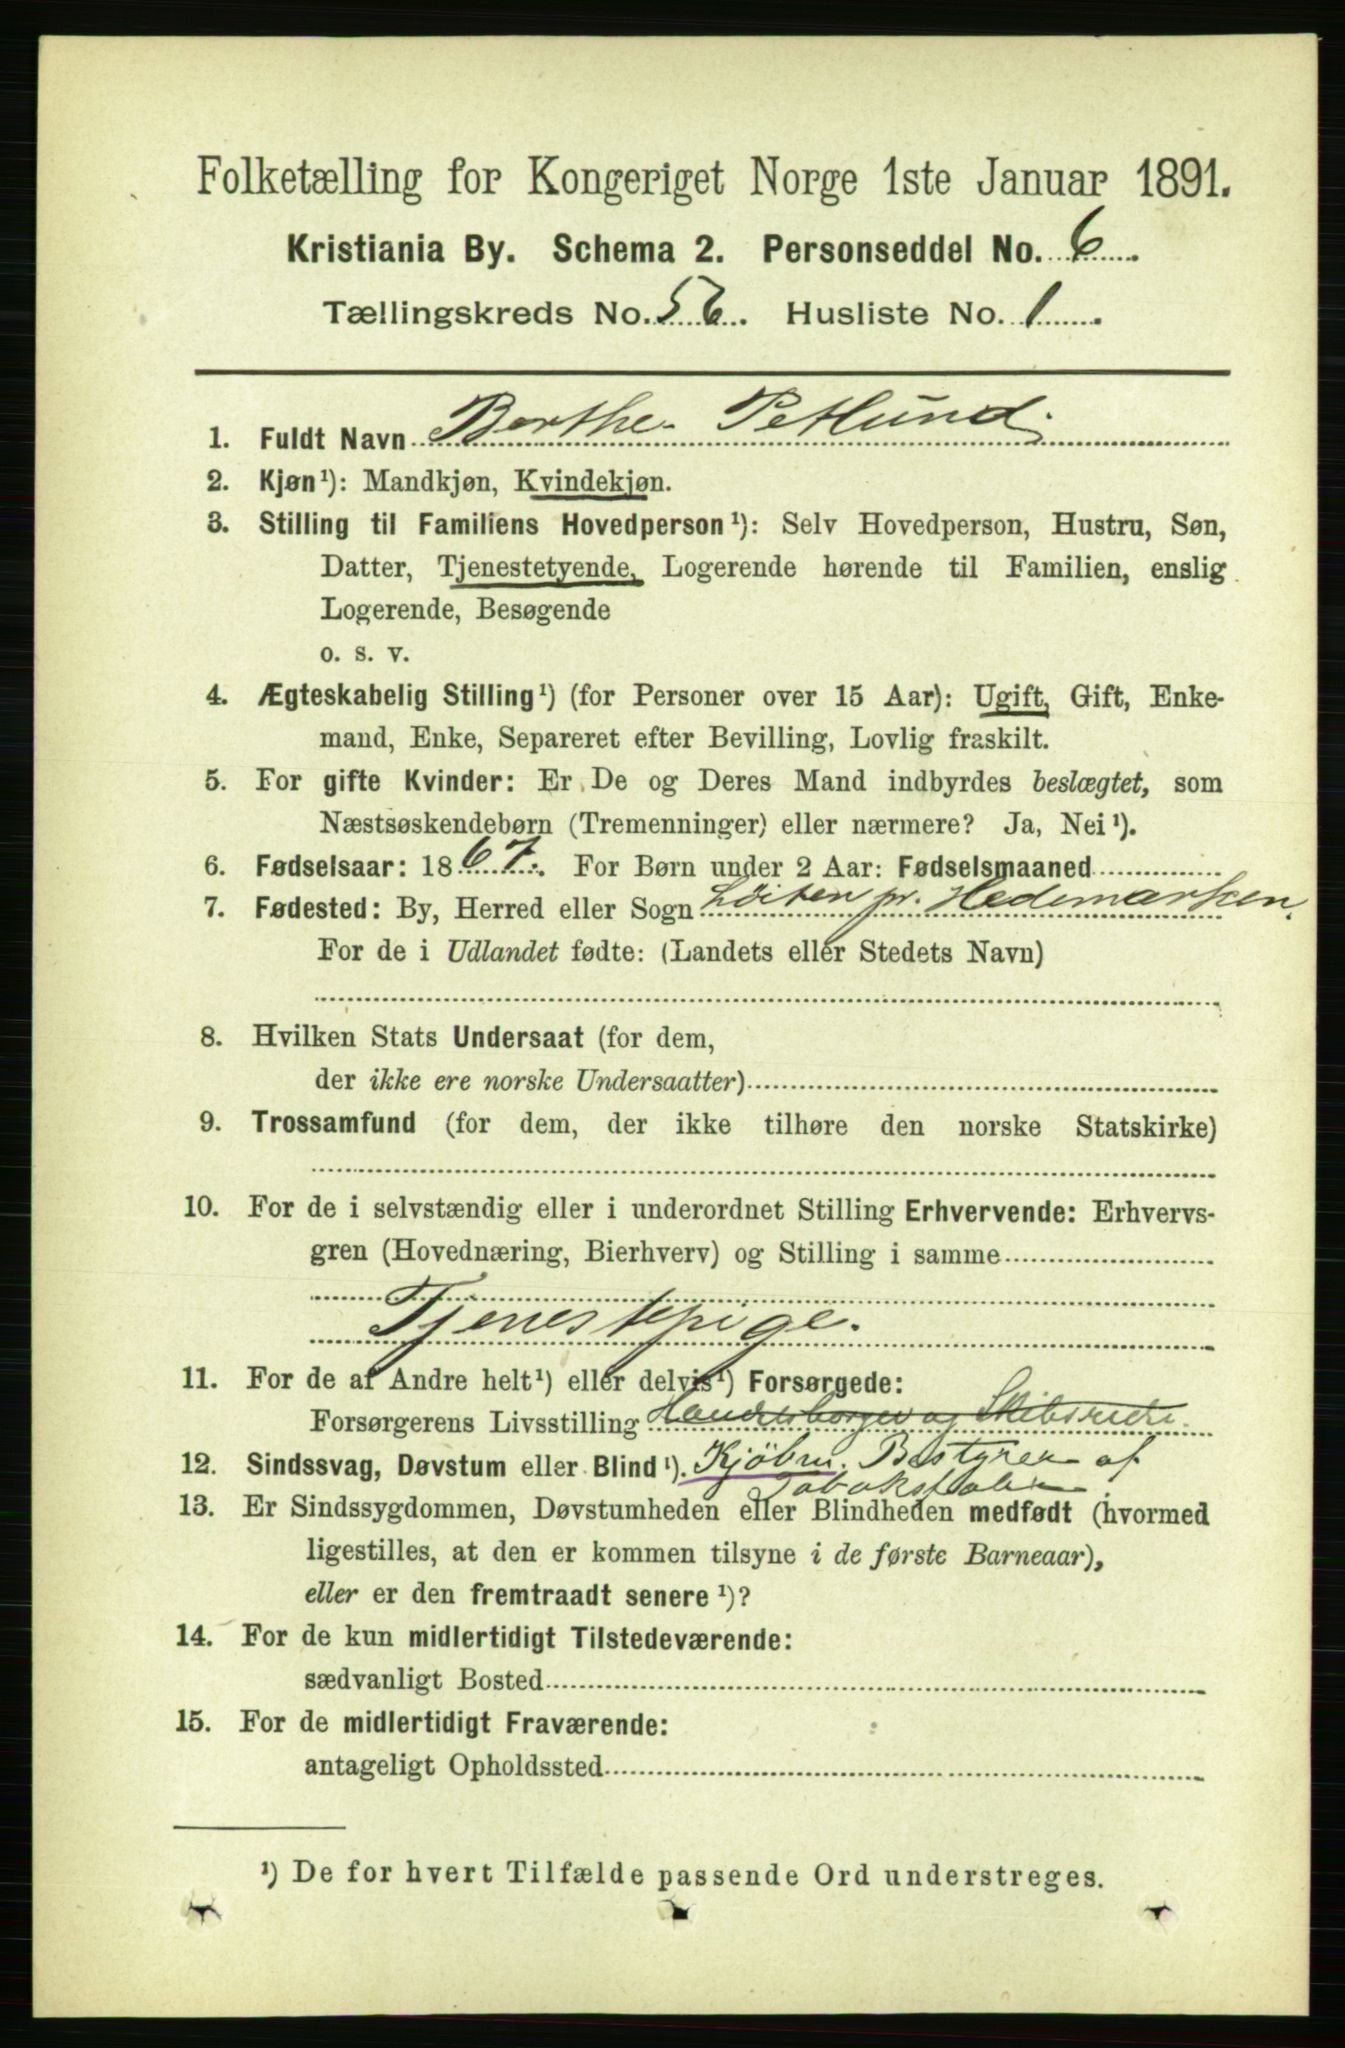 Folketælling for Kongeriget Norge 1ste Januar 1891.
Kristiania By. Schema 2. Personseddel No. 6
Tællingskreds No. 56. Husliste No. 1
1. Fuldt Navn Berthe Petlund.
2. Kjøn¹): Mandkjøn, Kvindekjøn.
3. Stilling til Familiens Hovedperson¹): Selv Hovedperson, Hustru, Søn,
Datter, Tjenestetyende, Logerende hørende til Familien, enslig
Logerende, Besøgende
o. s. v.
4. Ægteskabelig Stilling¹) (for Personer over 15 Aar): Ugift, Gift, Enke-
mand, Enke, Separeret efter Bevilling, Lovlig fraskilt.
5. For gifte Kvinder: Er De og Deres Mand indbyrdes beslægtet, som
Næstsøskendebørn (Tremenninger) eller nærmere? Ja, Nei¹).
6. Fødselsaar: 1867. For Børn under 2 Aar: Fødselsmaaned
7. Fødested: By, Herred eller Sogn Löiten pr. Hedemarken.
For de i Udlandet fødte: (Landets eller Stedets Navn)
8. Hvilken Stats Undersaat (for dem,
der ikke ere norske Undersaatter)
9. Trossamfund (for dem, der ikke tilhøre den norske Statskirke)
10. For de i selvstændig eller i underordnet Stilling Erhvervende: Erhvervs-
gren (Hovednæring, Bierhverv) og Stilling i samme
Tjenestepige.
11. For de af Andre helt¹) eller delvis¹) Forsørgede:
Forsørgerens Livsstilling Handelsborger og Skibsreder.
12. Sindssvag, Døvstum eller Blind¹). Kjöbm. Bestyrer af
13. Er Sindssygdommen, Døvstumheden eller Blindheden medfødt (hvormed
ligestilles, at den er kommen tilsyne i de første Barneaar),
eller er den fremtraadt senere¹)?
14. For de kun midlertidigt Tilstedeværende:
sædvanligt Bosted
15. For de midlertidigt Fraværende:
antageligt Opholdssted
¹) De for hvert Tilfælde passende Ord understreges.